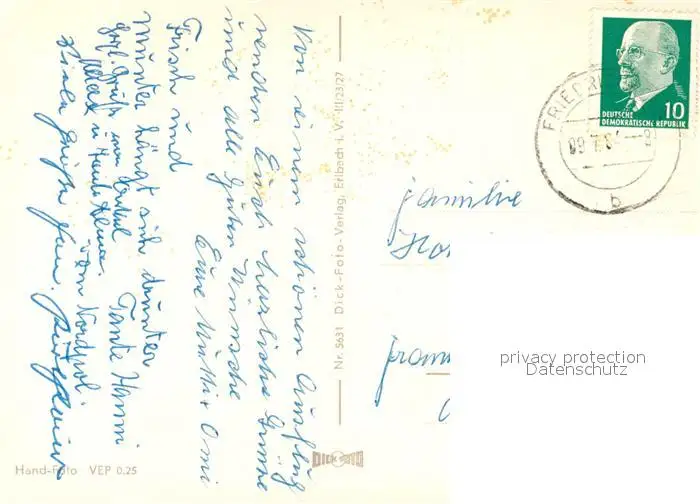 Von einem schönen Ausflug
senden Euch herzliche Grüße
und alle guten Wünsche
Eure Mutti + Omi
Frisch und
munter hängt sich drunter
Tante Hanni
herzl. Grüße von Onkel
u. Tante
vom Nordpol.
Viele Grüße Fam.
Hand-Foto VEP 0.25
Nr. 5631 Dick-Foto-Verlag, Erlbach i. V. III/23/27
DICK FOTO
DEUTSCHE
DEMOKRATISCHE REPUBLIK
10
b
Familie
privacy protection
Datenschutz